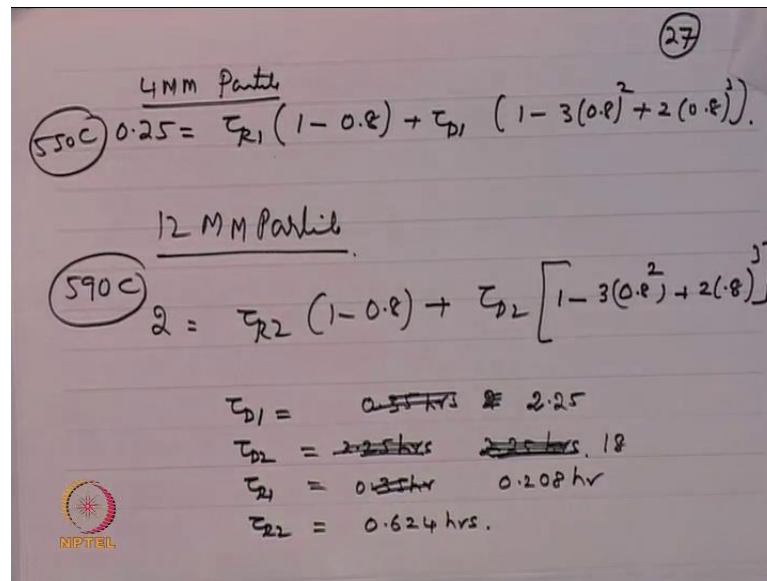 27
4MM Particle
550C 0.25 = τR1 (1 - 0.8) + τD1 (1 - 3(0.8)² + 2(0.8)³).
12 MM Particle.
590C
2 = τR2 (1 - 0.8) + τD2 [1 - 3(0.8²) + 2(.8)³]
τD1 = 0.35hrs 2.25
τD2 = 2.25hrs 2.25hrs. 18
τR1 = 0.35hr 0.208hr
τR2 = 0.624hrs.
NPTEL